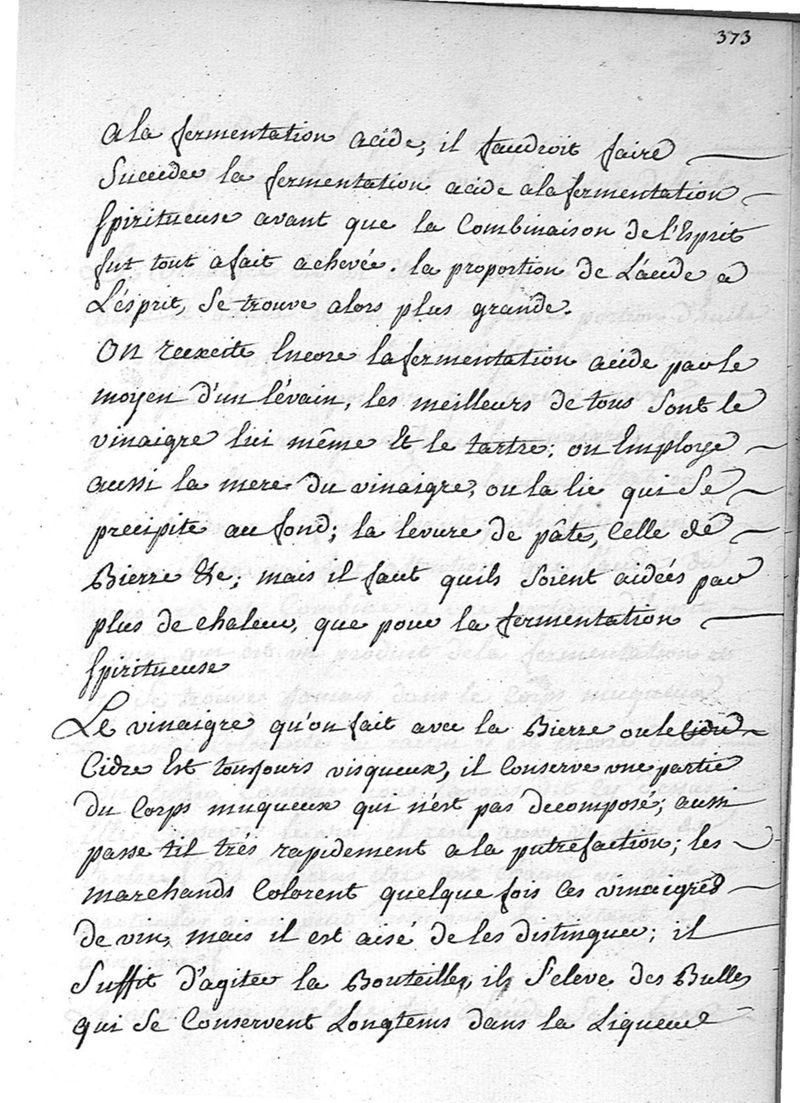 373
a la fermentation acide, il faudroit faire
succeder la fermentation acide a la fermentation
spiritueuse avant que la Combinaison de l'Esprit
fut tout a fait achevée. la proportion de L'acide a
L'ésprit, se trouve alors plus grande.
On reexcite Encore la fermentation acide par le
moyen d'un lévain, les meilleurs de tous sont le
vinaigre lui même Et le tartre; on Employe
aussi la mere du vinaigre, ou la lie qui se
precipite au fond; la levure de pâte, Celle de
Bierre &c; mais il faut quils soient aidées par
plus de chaleur, que pour la fermentation
spiritueuse
Le vinaigre qu'on fait avec la Bierre ou le Cidre
Cidre Est toujours visqueux, il Conserve une partie
du Corps muqueux qui n'est pas decomposé; aussi
passe til trés rapidement a la putrefaction; les
marchands Colorent quelque fois ces vinaigres
de vin, mais il est aisé de les distinguer; il
suffit d'agiter la Bouteille, il s'eleve des Bulles
qui se Conservent Longtems dans la Liqueur